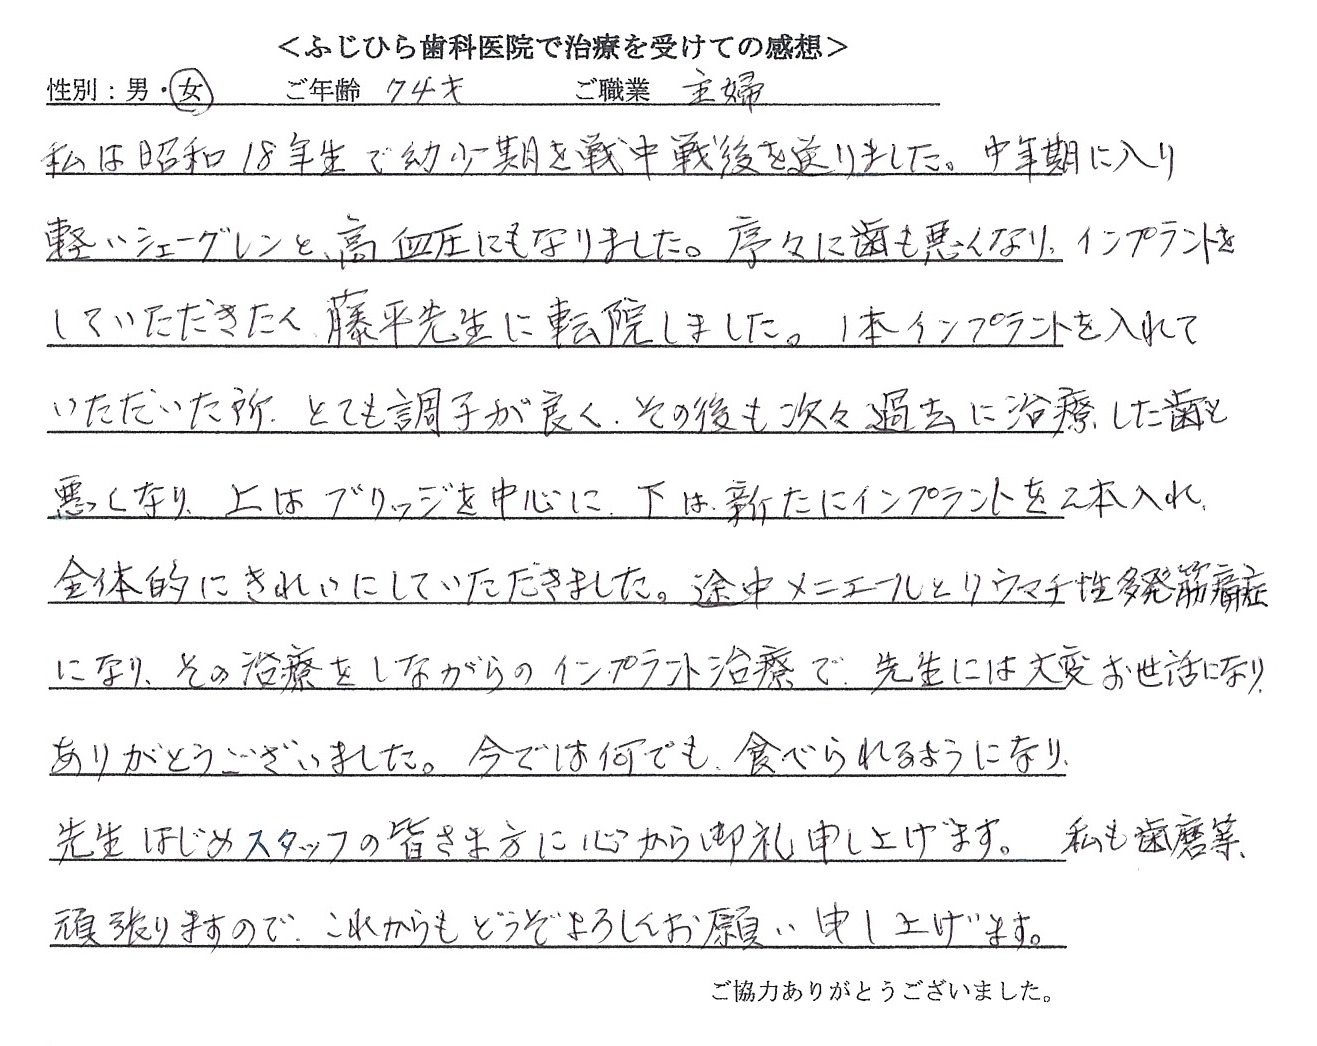 ＜ふじひら歯科医院で治療を受けての感想＞
性別：男・女 ご年齢 74才 ご職業 主婦
私は昭和18年生で幼少期を戦中戦後を送りました。中年期に入り
軽いシェーグレンと、高血圧にもなりました。序々に歯も悪くなり、インプラントを
していただきたく、藤平先生に転院しました。1本インプラントを入れて
いただいた所、とても調子が良く、その後も次々過去に治療した歯も
悪くなり、上はブリッジを中心に、下は、新たにインプラントを2本入れ、
全体的にきれいにしていただきました。途中メニエールとリウマチ性多発筋痛症
になり、その治療をしながらのインプラント治療で、先生には大変お世話になり、
ありがとうございました。今では何でも、食べられるようになり、
先生はじめスタッフの皆さま方に心から御礼申し上げます。 私も歯磨等、
頑張りますので、これからもどうぞよろしくお願い申し上げます。
ご協力ありがとうございました。